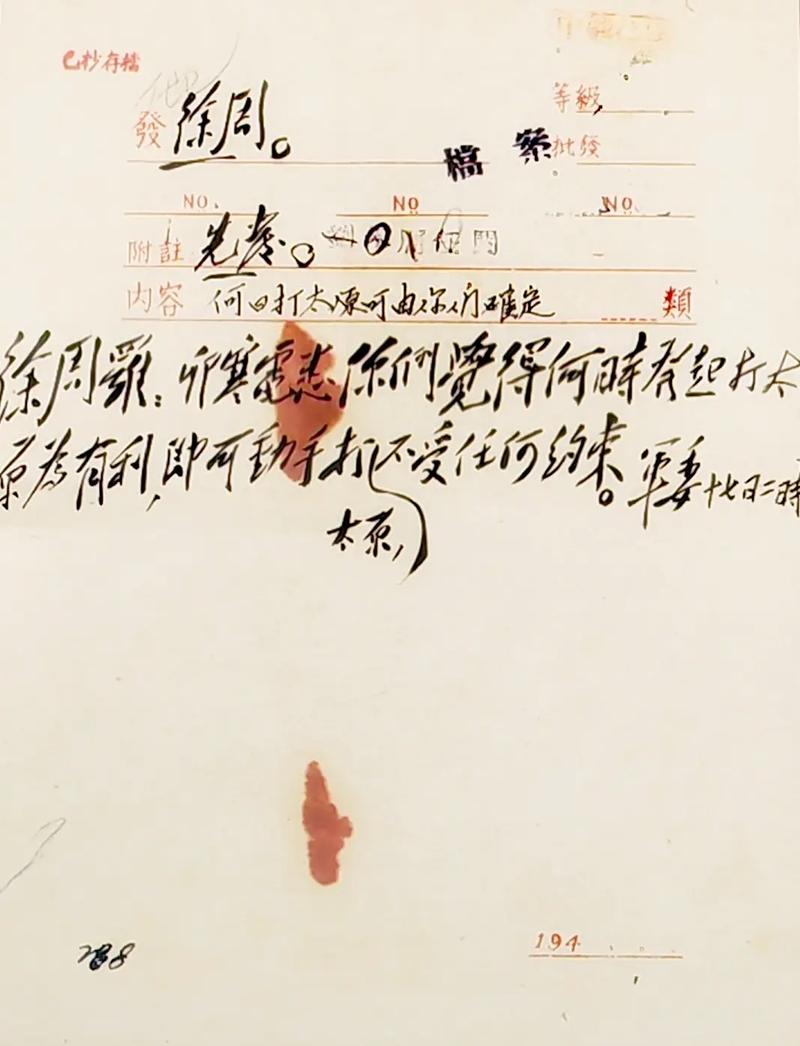 已抄存檔
等級
發 徐周。
檔案 批發
NO. NO NO.
附註 先發。
内容 何日打太原可由你们確定 類
徐周羅：卯寒電悉你們覺得何時發起打太
原為有利，即可動手打太原，不受任何約束。軍委十七日二時
288
194